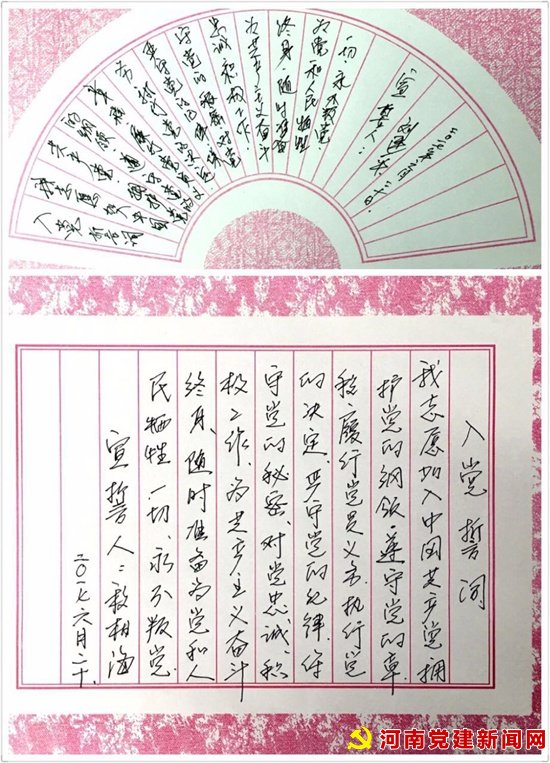 入党誓词
我志愿加入中国
共产党、拥护党
的纲领、遵守党的章
守党的秘密、对党
忠诚、积极工作、
为共产主义奋斗
终身、随时准备
为党和人民牺牲
一切、永不叛党
宣誓人：
入党誓词
我志愿加入中国共产党拥
护党的纲领、遵守党的章
程、履行党员义务、执行党
的决定、严守党的纪律、保
守党的秘密、对党忠诚、积
极工作、为共产主义奋斗
终身、随时准备为党和人
民牺牲一切、永不叛党、
宣誓人：相海
二〇一七六月二十.
河南党建新闻网